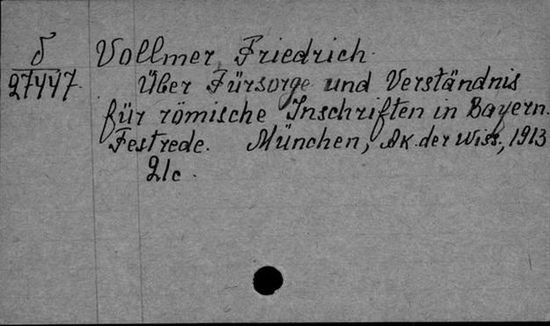 δ Vollmer, Friedrich.
27447. Über Fürsorge und Verständnis
für römische Inschriften in Bayern.
Festrede. München, Ak. der Wiss., 1913
21c.